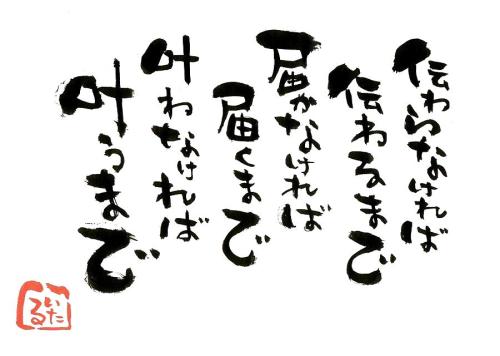 伝わらなければ
伝わるまで
届かなければ
届くまで
叶わなければ
叶うまで
いたる